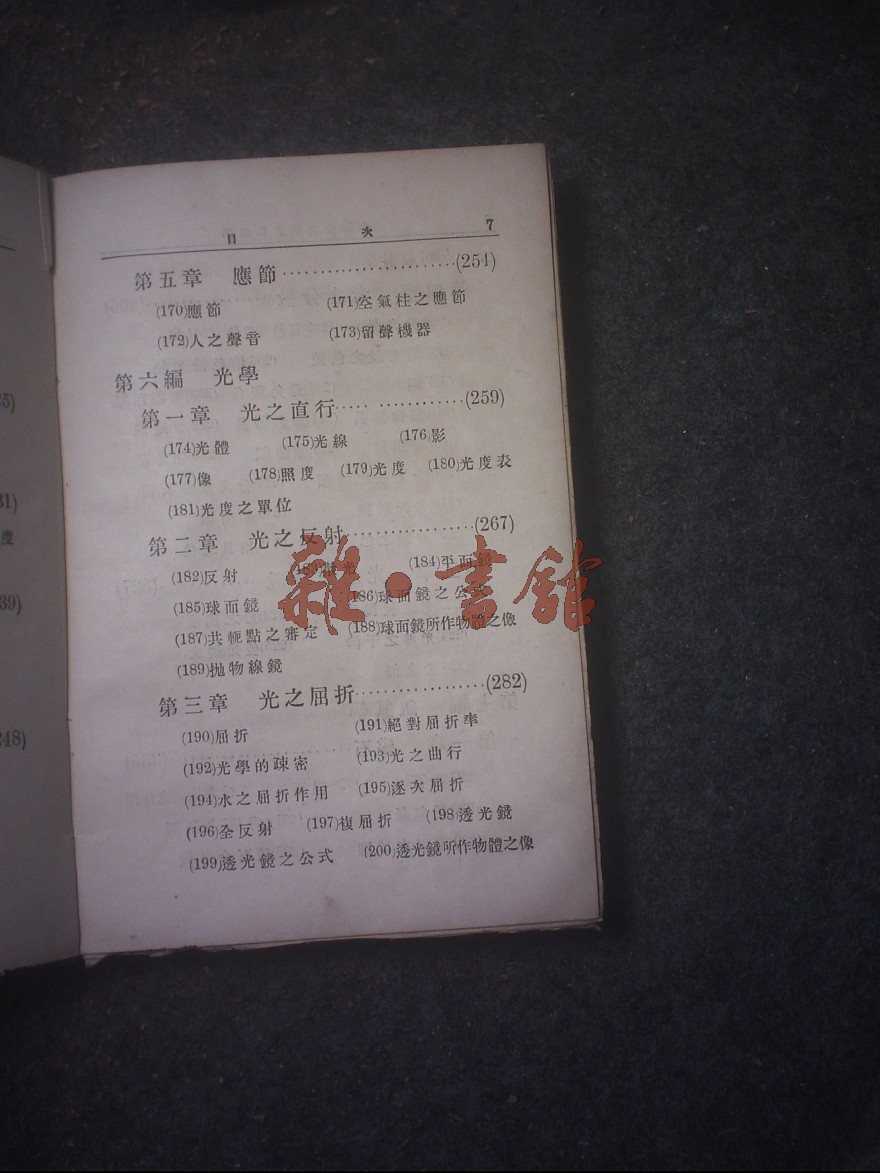 目 次 7
第五章 應節························(254)
(170)應節 (171)空氣柱之應節
(172)人之聲音 (173)留聲機器
第六編 光學
第一章 光之直行·················(259)
(174)光體 (175)光線 (176)影
(177)像 (178)照度 (179)光度 (180)光度表
(181)光度之單位
第二章 光之反射··················(267)
(182)反射 (183) 光 (184)平面鏡
(185)球面鏡 (186)球面鏡之公式
(187)共軛點之審定 (188)球面鏡所作物體之像
(189)拋物線鏡
第三章 光之屈折··················(282)
(190)屈折 (191)絕對屈折率
(192)光學的疎密 (193)光之曲行
(194)水之屈折作用 (195)逐次屈折
(196)全反射 (197)複屈折 (198)透光鏡
(199)透光鏡之公式 (200)透光鏡所作物體之像
雜·書館
31)
度
39)
248)